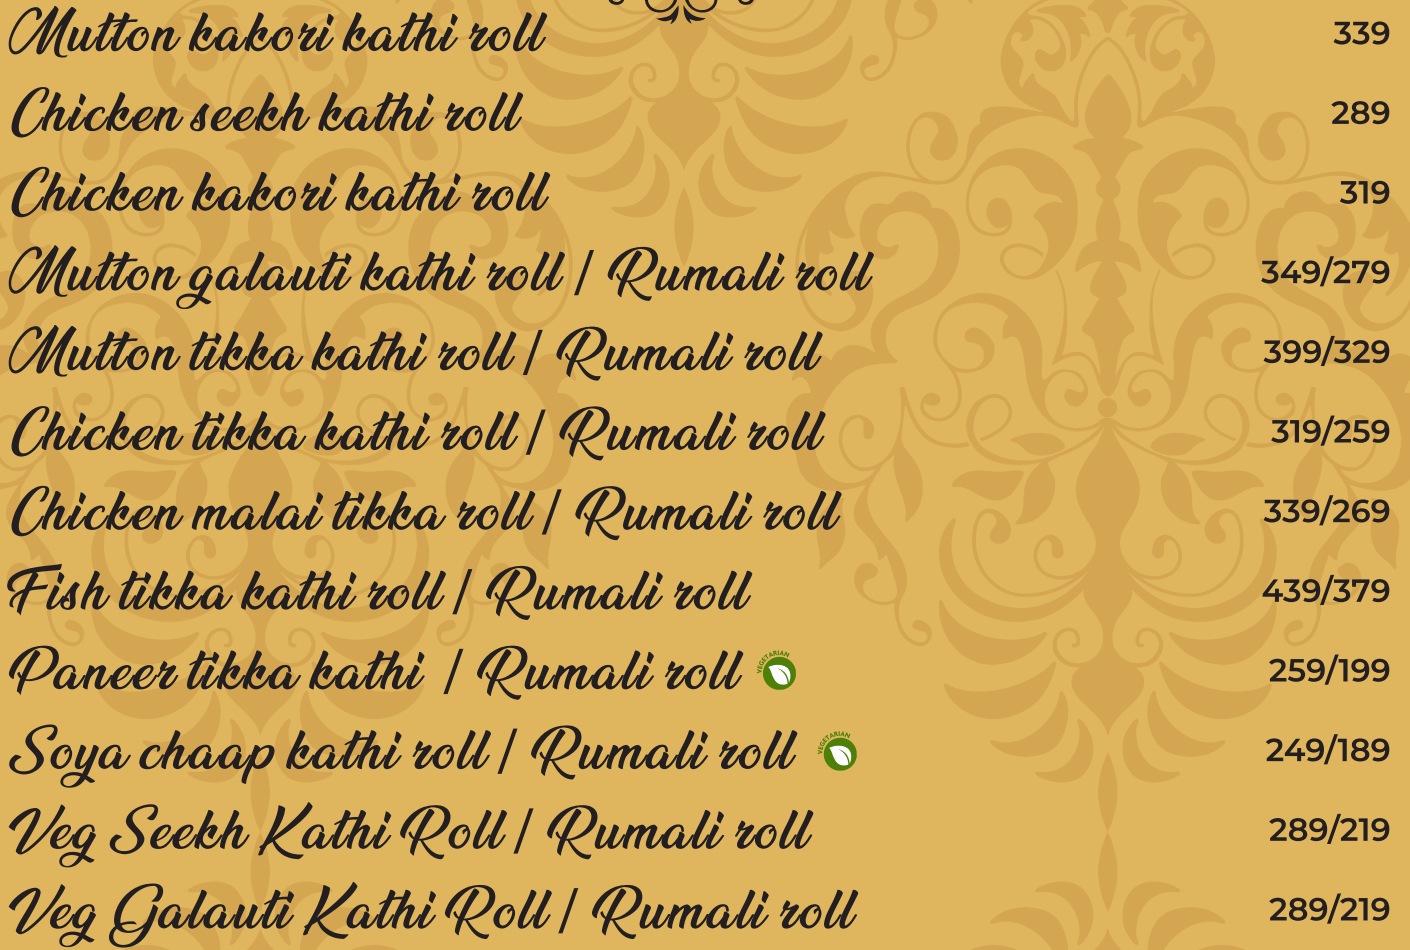 Mutton kakori kathi roll 339
Chicken seekh kathi roll 289
Chicken kakori kathi roll 319
Mutton galauti kathi roll / Rumali roll 349/279
Mutton tikka kathi roll / Rumali roll 399/329
Chicken tikka kathi roll / Rumali roll 319/259
Chicken malai tikka roll / Rumali roll 339/269
Fish tikka kathi roll / Rumali roll 439/379
Paneer tikka kathi / Rumali roll VEGETARIAN 259/199
Soya chaap kathi roll / Rumali roll VEGETARIAN 249/189
Veg Seekh Kathi Roll / Rumali roll 289/219
Veg Galauti Kathi Roll / Rumali roll 289/219